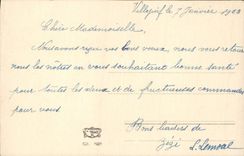 Villejuif le 7 Janvier 1903
Chère Mademoiselle,
Nous avons reçu vos bons voeux, nous vous retour
nous les nôtres en vous souhaitant bonne santé
pour toutes les deux et de fructueuses commandes
pour vous
Bons baisers de
Zézé
S. Lemoal